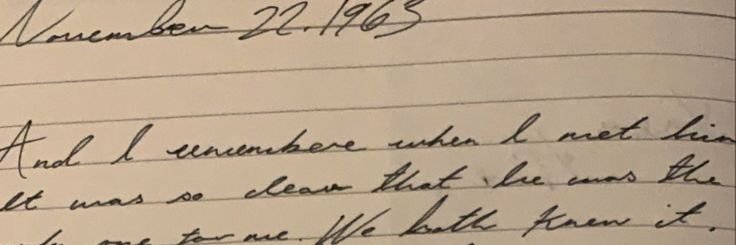 November 22. 1963
And I remembere when I met him
It was so clear that he was the
only one for me. We both knew it.